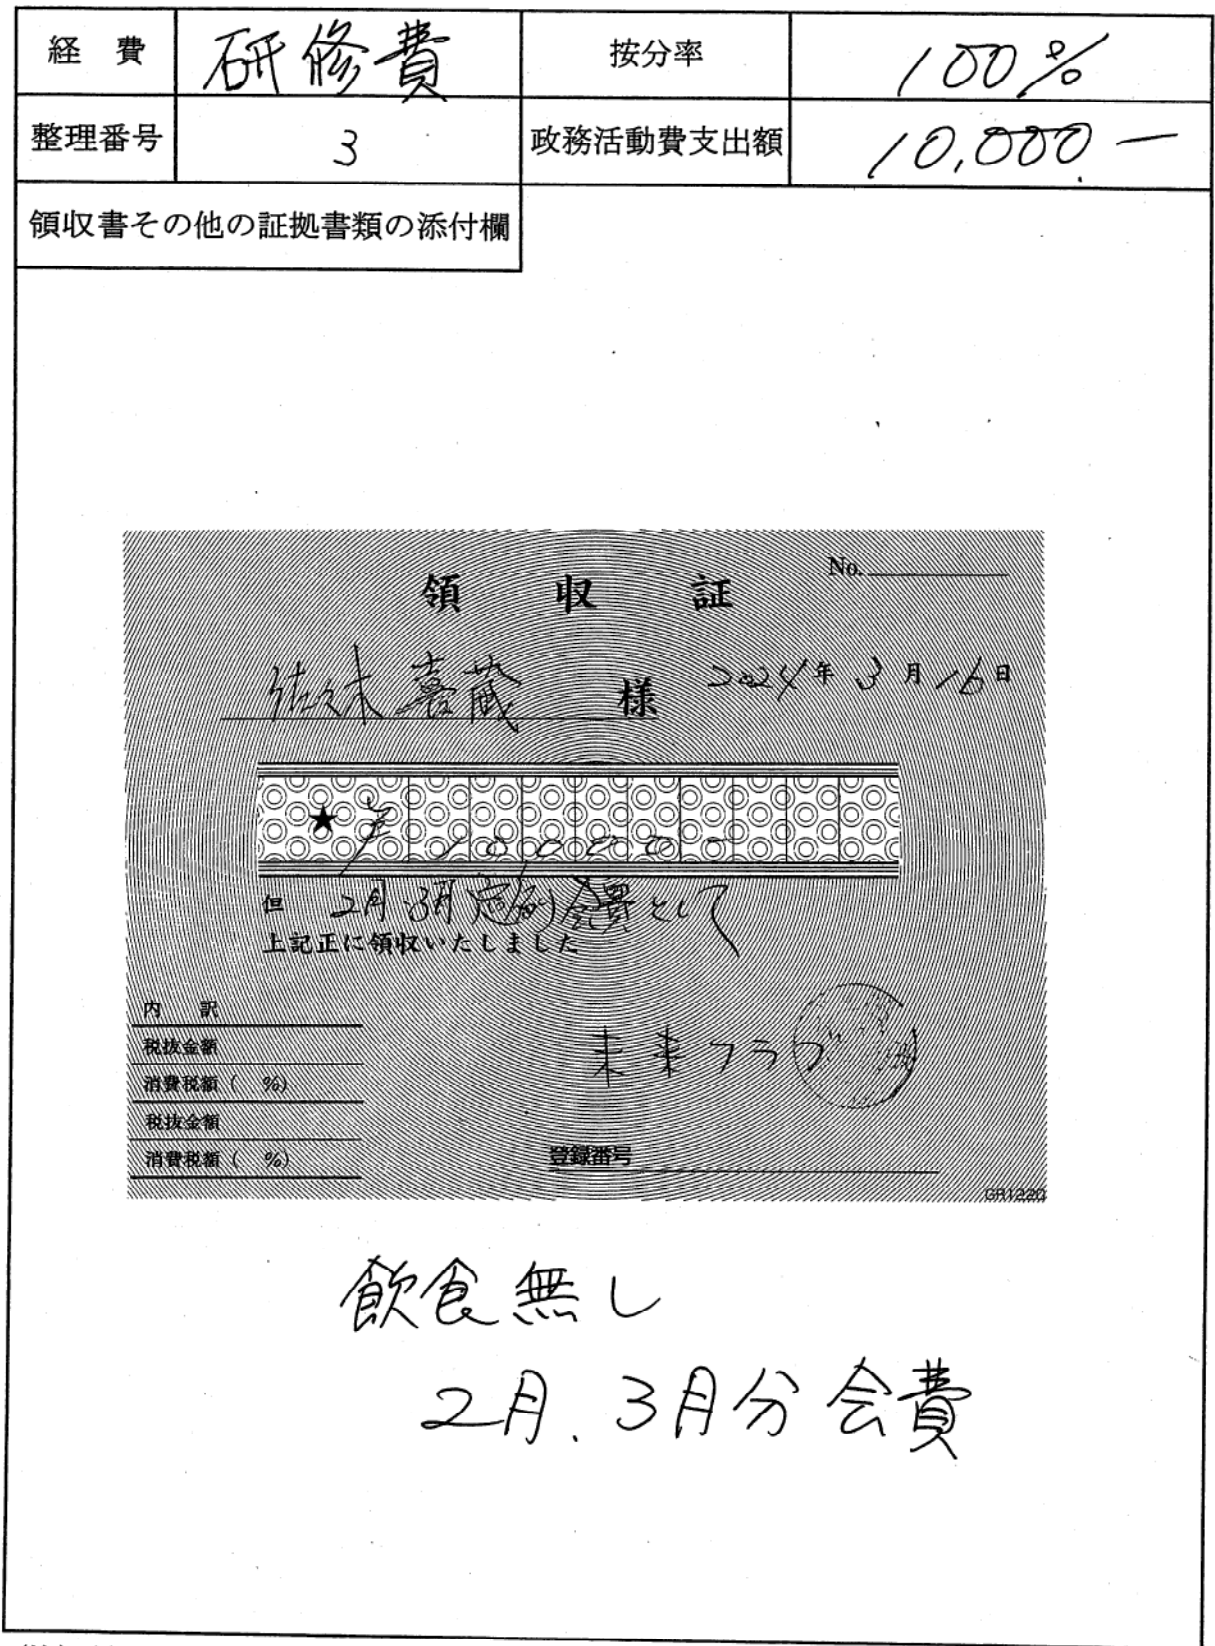 経 費 研修費 按分率 100%
整理番号 3 政務活動費支出額 10,000-
領収書その他の証拠書類の添付欄
No.
領 収 証
佐々木 喜蔵 様 2024年3月16日
★ 金 10000-
但 2月・3月定例会費として
上記正に領収いたしました
内 訳
税抜金額
消費税額( %)
税抜金額
消費税額( %)
未来クラブ
登録番号
GR1220
飲食無し
2月、3月分会費